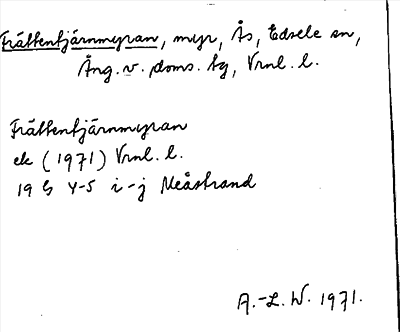 Frättentjärnmyran, myr, Ås, Edsele sn,
Ång. v. doms. tg, Vrnl. l.
Frättentjärnmyran
ek (1971) Vrnl. l.
19 G 4-5 i-j Meåstrand
A.-L. W. 1971.